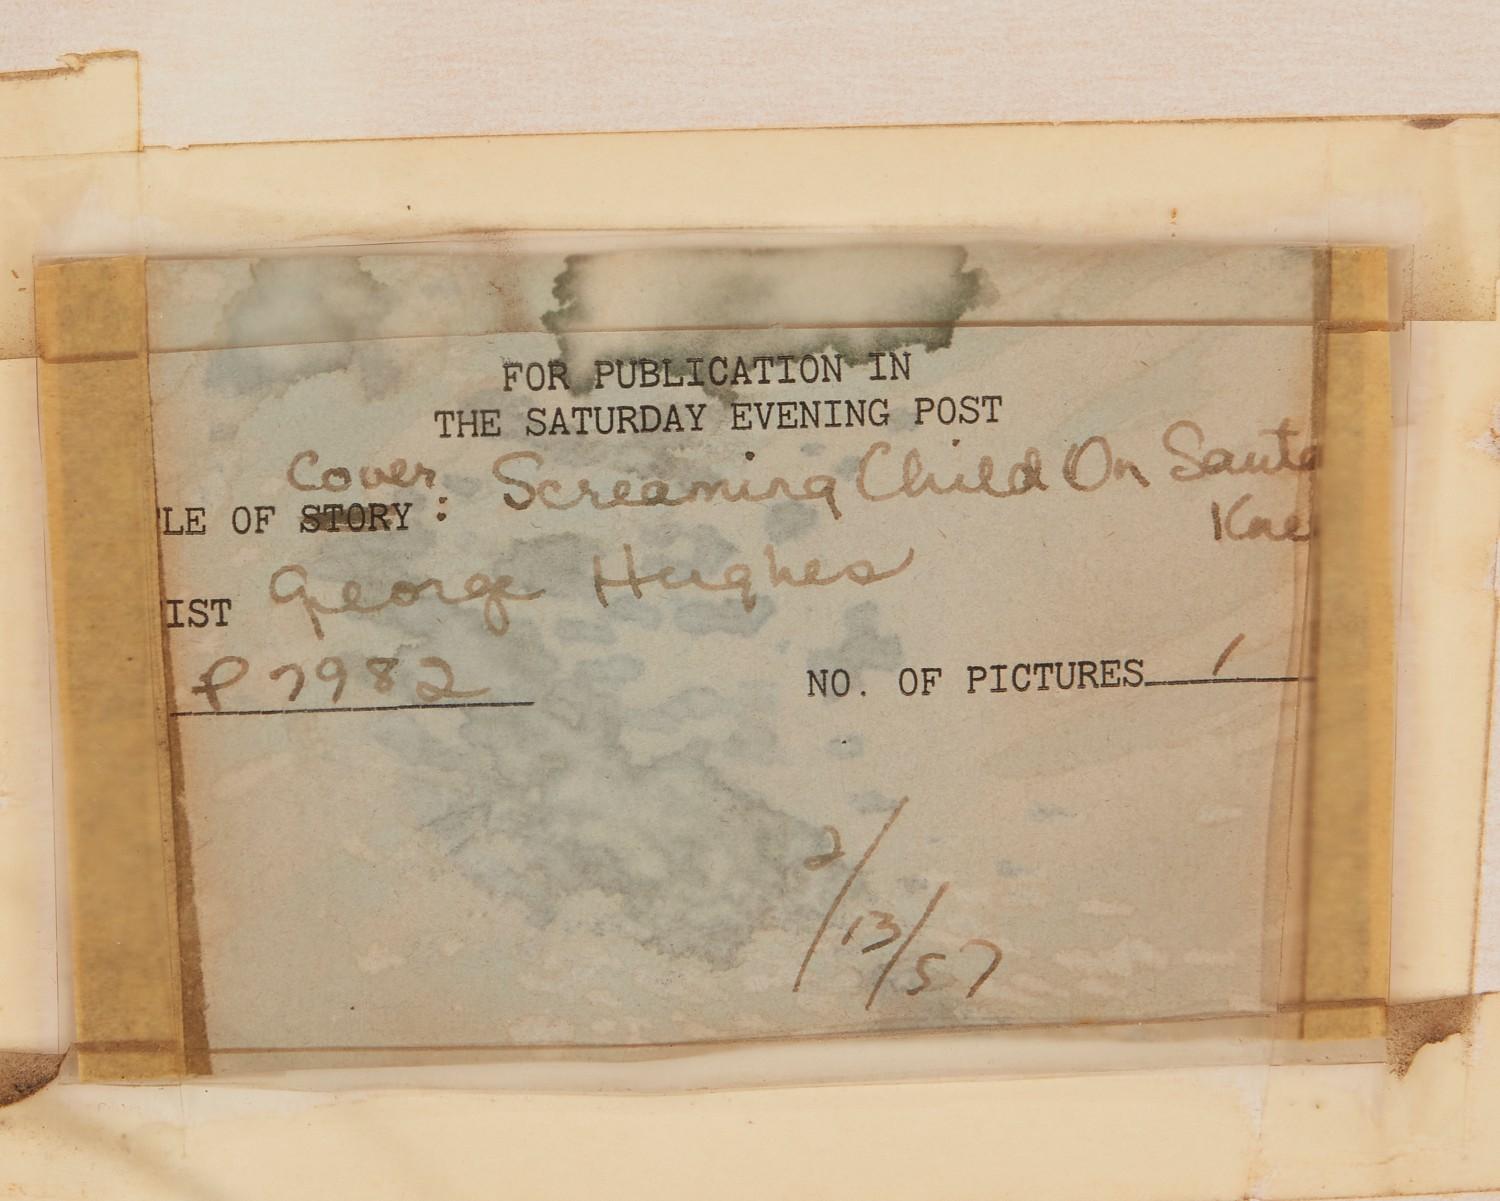 FOR PUBLICATION IN
THE SATURDAY EVENING POST
Cover Screaming Child On Santa
LE OF STORY :
Knee
IST George Hughes
P 7982 NO. OF PICTURES 1
2/13/57